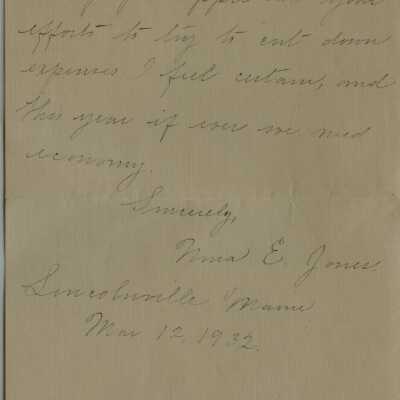 efforts to try to cut down
expenses I feel certain, and
this year if ever we need
economy.
Sincerely,
Nina E. Jones
Lincolnville Maine
Mar 12, 1932.